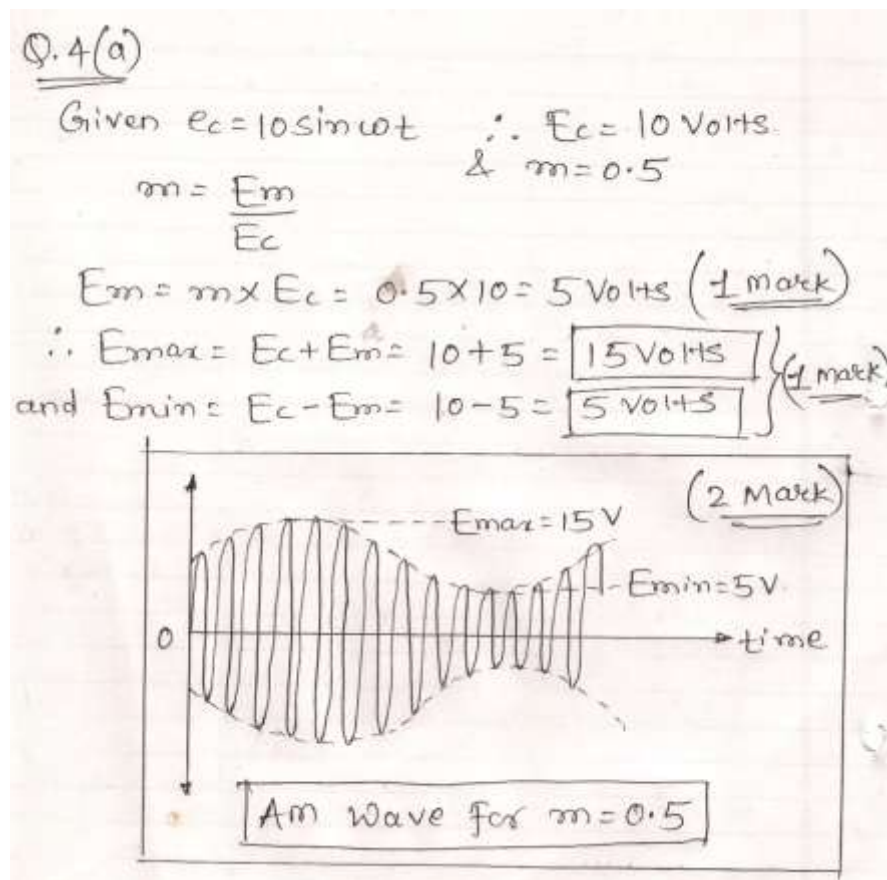 Q.4(a)
Given ec = 10 sin ωt ∴ Ec = 10 Volts.
& m = 0.5
m = Em
Ec
Em = m x Ec = 0.5 x 10 = 5 Volts (1 mark)
∴ Emax = Ec + Em = 10 + 5 = 15 Volts
and Emin = Ec - Em = 10 - 5 = 5 Volts } (1 mark)
(2 Mark)
Emax = 15 V
Emin = 5 V.
0
time
Am Wave For m = 0.5